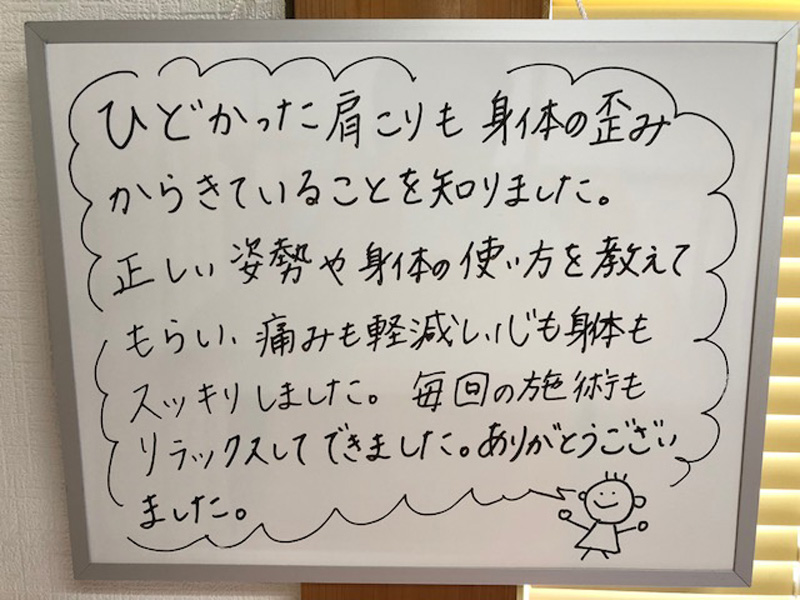 ひどかった肩こりも 身体の歪み
からきていることを知りました。
正しい姿勢や身体の使い方を教えて
もらい、痛みも軽減し心も身体も
スッキリしました。毎回の施術も
リラックスしてできました。ありがとうござい
ました。